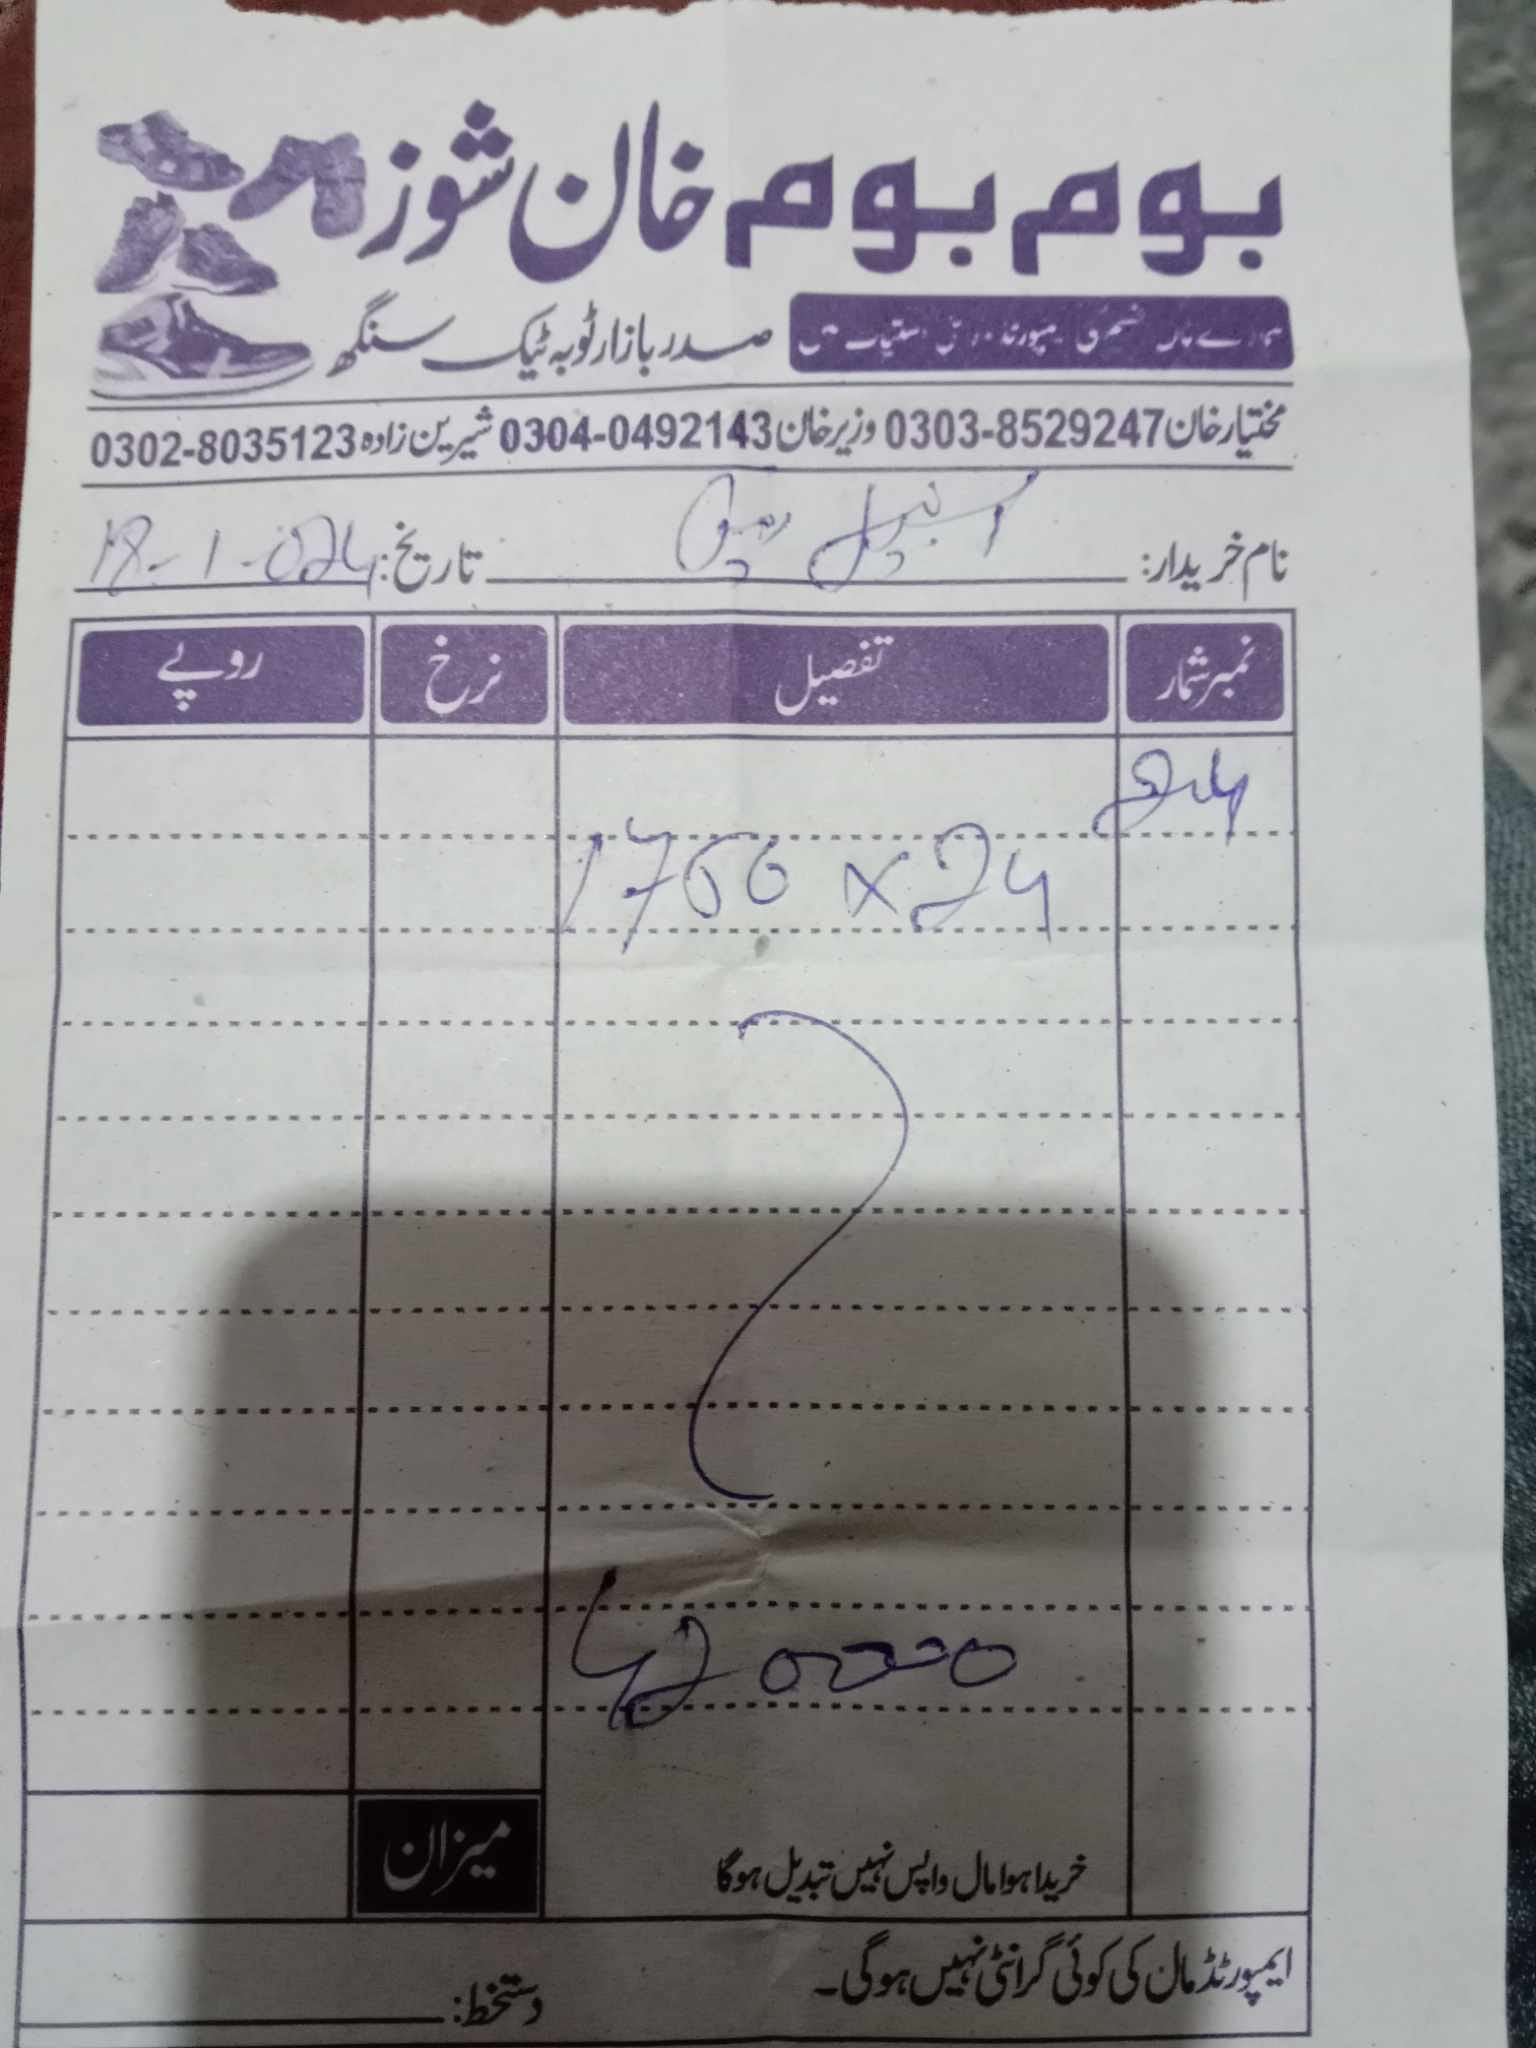 بوم بوم خان شوز
ہمارے ہاں ہر قسم کی امپورٹڈ ورائٹی دستیاب ہیں
صدر بازار ٹوبہ ٹیک سنگھ
مختیار خان 0303-8529247 وزیر خان 0304-0492143 شیرین زادہ 0302-8035123
نام خریدار: تاریخ: 18-1-024
نمبر شمار تفصیل نرخ روپے
24
1760 x 24
42000
میزان
خریدا ہوا مال واپس نہیں تبدیل ہوگا
ایمپورٹڈ مال کی کوئی گرانٹی نہیں ہوگی۔
دستخط: